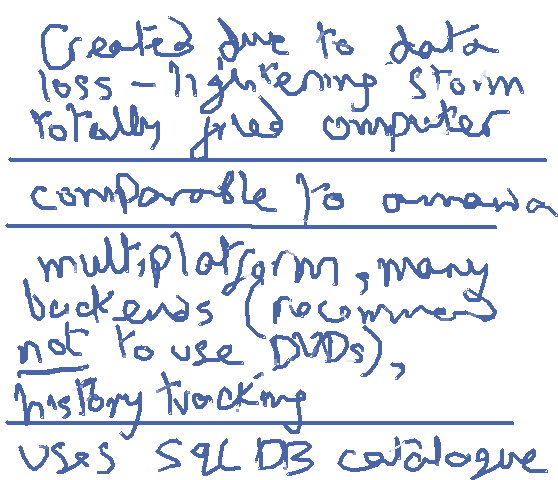 Created due to data
loss - lightening storm
totally fried computer
comparable to amanda
multiplatform, many
backends (recommend
not to use DVDs),
history tracking
uses SQL DB catalogue